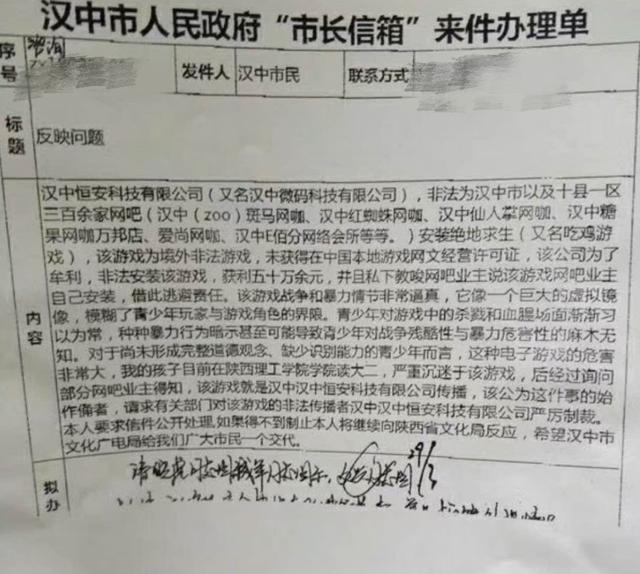 汉中市人民政府“市长信箱”来件办理单
序号
发件人
汉中市民
联系方式
标题
反映问题
内容
汉中恒安科技有限公司（又名汉中微码科技有限公司），非法为汉中市以及十县一区
三百余家网吧（汉中（zoo）斑马网咖、汉中红蜘蛛网咖、汉中仙人掌网咖、汉中糖
果网咖万邦店、爱尚网咖、汉中E佰分网络会所等等。）安装绝地求生（又名吃鸡游
戏），该游戏为境外非法游戏，未获得在中国本地游戏网文经营许可证，该公司为了
牟利，非法安装该游戏，获利五十万余元，并且私下教唆网吧业主说该游戏网吧业主
自己安装，借此逃避责任。该游戏战争和暴力情节非常逼真，它像一个巨大的虚拟镜
像，模糊了青少年玩家与游戏角色的界限。青少年对游戏中的杀戮和血腥场面渐渐习
以为常，种种暴力行为暗示甚至可能导致青少年对战争残酷性与暴力危害性的麻木无
知。对于尚未形成完整道德观念、缺少识别能力的青少年而言，这种电子游戏的危害
非常大，我的孩子目前在陕西理工学院学院读大二，严重沉迷于该游戏，后经过询问
部分网吧业主得知，该游戏就是汉中汉中恒安科技有限公司传播，该公为这件事的始
作俑者，请求有关部门对该游戏的非法传播者汉中汉中恒安科技有限公司严厉制裁。
本人要求信件公开处理，如果得不到制止本人将继续向陕西省文化局反应，希望汉中市
文化广电局给我们广大市民一个交代。
拟办
29/3